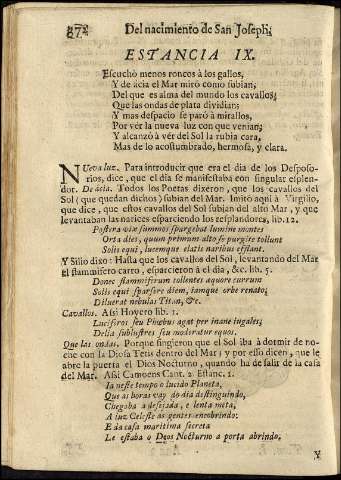 372 Del nacimiento de San Joseph,
ESTANCIA IX.
Escuchò menos roncos à los gallos,
Y de àcia el Mar mirò como subian;
Del que es alma del mundo los cavallos;
Que las ondas de plata dividian;
Y mas despacio se parò à mirallos,
Por vèr la nueva luz con que venian;
Y alcanzò à vèr del Sol la rubia cara,
Mas de lo acostumbrado, hermosa, y clara.
Nueva luz. Para introducir que era el dia de los Desposo-
rios, dice, que el dia se manifestaba con singular esplen-
dor. De àcia. Todos los Poetas dixeron, que los cavallos del
Sol (que quedan dichos) subian del Mar. Imitò aqui à Virgilio,
que dice, que estos cavallos del Sol subian del alto Mar, y que
levantaban las narices esparciendo los resplandores, lib. 12.
Postera vix summos spargebat lumine montes
Orta dies, quum primum alto se gurgite tollunt
Solis equi, lucemque elatis naribus efflant.
Y Silio dixo: Hasta que los cavallos del Sol, levantando del Mar
el flammifero carro, esparcieron à el dia, &c. lib. 5.
Donec flammiferum tollentes æquore currum
Solis equi sparsere diem, iamque orbe renato,
Diluerat nebulas Titan, &c.
Cavallos. Assi Hoyero lib. 1.
Luciferos seu Phœbus agat per inane iugales;
Delia sublustres seu moderatur equos.
Que las ondas. Porque fingieron que el Sol iba à dormir de no-
che con la Diosa Tetis dentro del Mar; y por esso dicen, que le
abre la puerta el Dios Nocturno, quando ha de salir de la casa
del Mar. Assi Camoens Cant. 2. Estanc. 1.
Ia neste tempo o lucido Planeta,
Que as horas vay do dia distinguindo,
Chegaba à desejada, e lenta meta,
A luz Celeste às gentes encobrindo:
E da casa maritima secreta
Le estaba o Deos Nocturno a porta abrindo,
Y